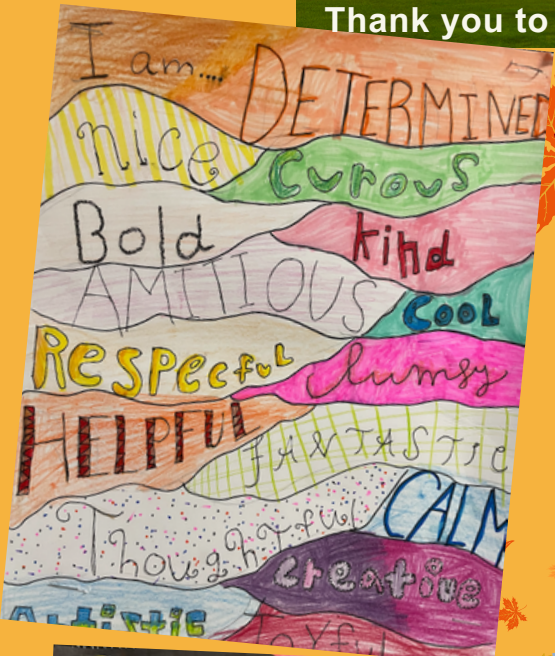 Thank you to
I am....
DETERMINED
nice
Curous
Bold
kind
AMITIOUS
COOL
Respecful
Clumsy
HELPFUL
FANTASTIC
Thoughtful
CALM
creative
Artistic
Joyful